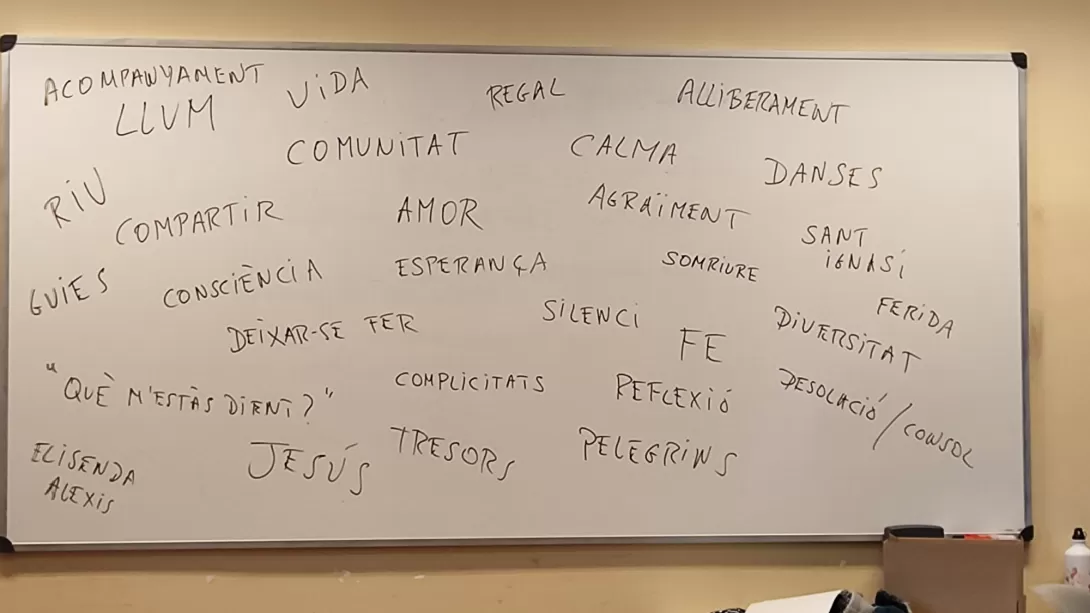 ACOMPANYAMENT
LLUM
ViDA
REGAL
ALLiBERAMENT
COMUNiTAT
CALMA
DANSES
RiU
COMPARTiR
AMOR
AGRAÏMENT
SANT
iGNASÍ
GUiES
CONSCiÈNCiA
ESPERANÇA
SOMRiURE
FERiDA
DEiXAR-SE FER
SiLENCi
FE
DiVERSiTAT
"QUÈ M'ESTÀS DiENT?"
COMPLiCiTATS
REFLEXiÓ
DESOLACiÓ/CONSOL
ELiSENDA
ALEXiS
JESÚS
TRESORS
PELEGRiNS